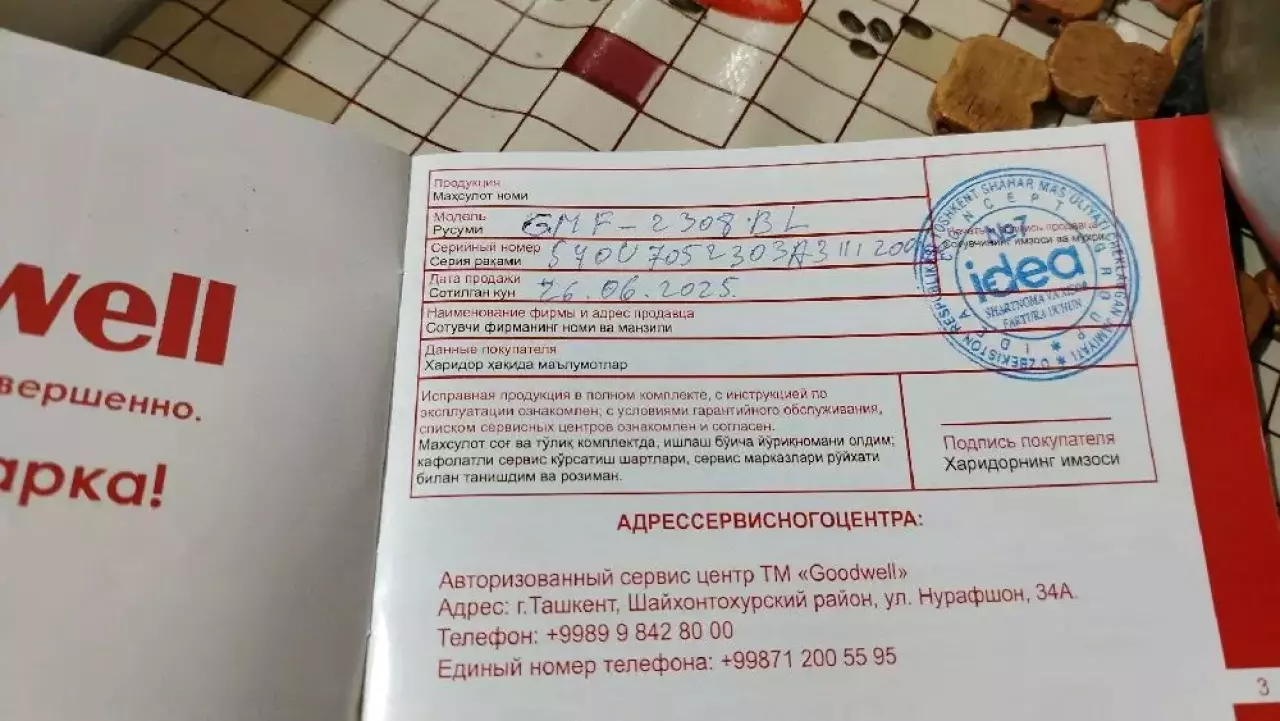 well
вершенно.
арка!
Продукция
Маҳсулот номи
Модель
Русуми
GMF-2308.BL
Серийный номер
Серия рақами
Дата продажи
Сотилган кун
26.06.2025.
Наименование фирмы и адрес продавца
Сотувчи фирманинг номи ва манзили
Данные покупателя
Харидор ҳақида маълумотлар
Исправная продукция в полном комплекте, с инструкцией по
эксплуатации ознакомлен, с условиями гарантийного обслуживания,
списком сервисных центров ознакомлен и согласен.
Махсулот соғ ва тўлиқ комплектда, ишлаш бўича йўриқномани олдим;
кафолатли сервис кўрсатиш шартлари, сервис марказлари рўйхати
билан танишдим ва розиман.
№7
idea
SHARTNOMA VA HISOB
FAKTURA UCHUN
Подпись покупателя
Харидорнинг имзоси
АДРЕССЕРВИСНОГОЦЕНТРА:
Авторизованный сервис центр ТМ «Goodwell»
Адрес: г.Ташкент, Шайхонтохурский район, ул. Нурафшон, 34А.
Телефон: +9989 9 842 80 00
Единый номер телефона: +99871 200 55 95
3